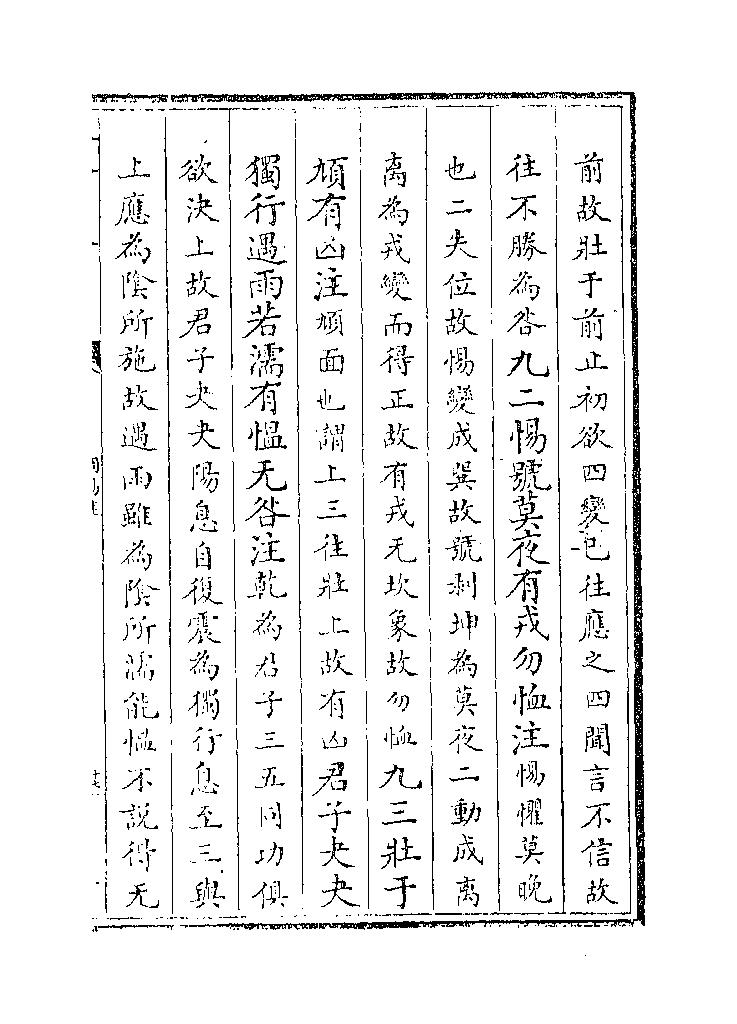 前故壯于前止初欲四變已往應之四聞言不信故
往不勝為咎九二惕號莫夜有戎勿恤注惕懼莫晚
也二失位故惕變成巽故號剥坤為莫夜二動成离
离為戎變而得正故有戎无坎象故勿恤九三壯于
頄有凶注頄面也謂上三往壯上故有凶君子夬夬
獨行遇雨若濡有愠无咎注乾為君子三五同功俱
欲決上故君子夬夬陽息自復震為獨行息至三與
上應為陰所施故遇雨雖為陰所濡能愠不説得无